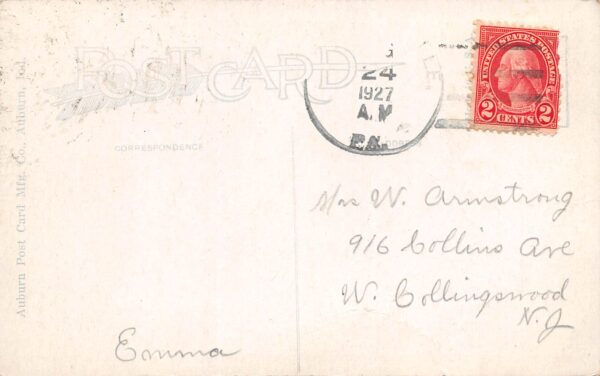 POST CARD
24
1927
A.M
PA.
UNITED STATES POSTAGE
2 CENTS 2
CORRESPONDENCE
Auburn Post Card Mfg. Co., Auburn, Ind.
Mrs W. Armstrong
916 Collins Ave
W. Collingswood
N.J
Emma